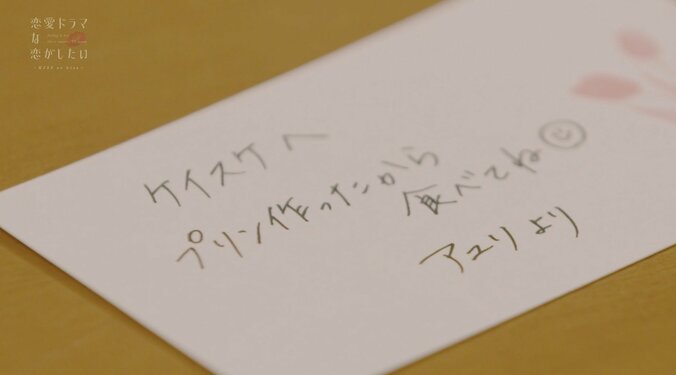 恋愛ドラマ
な
恋がしたい
ケイスケへ
プリン作ったから
食べてね
アユリより